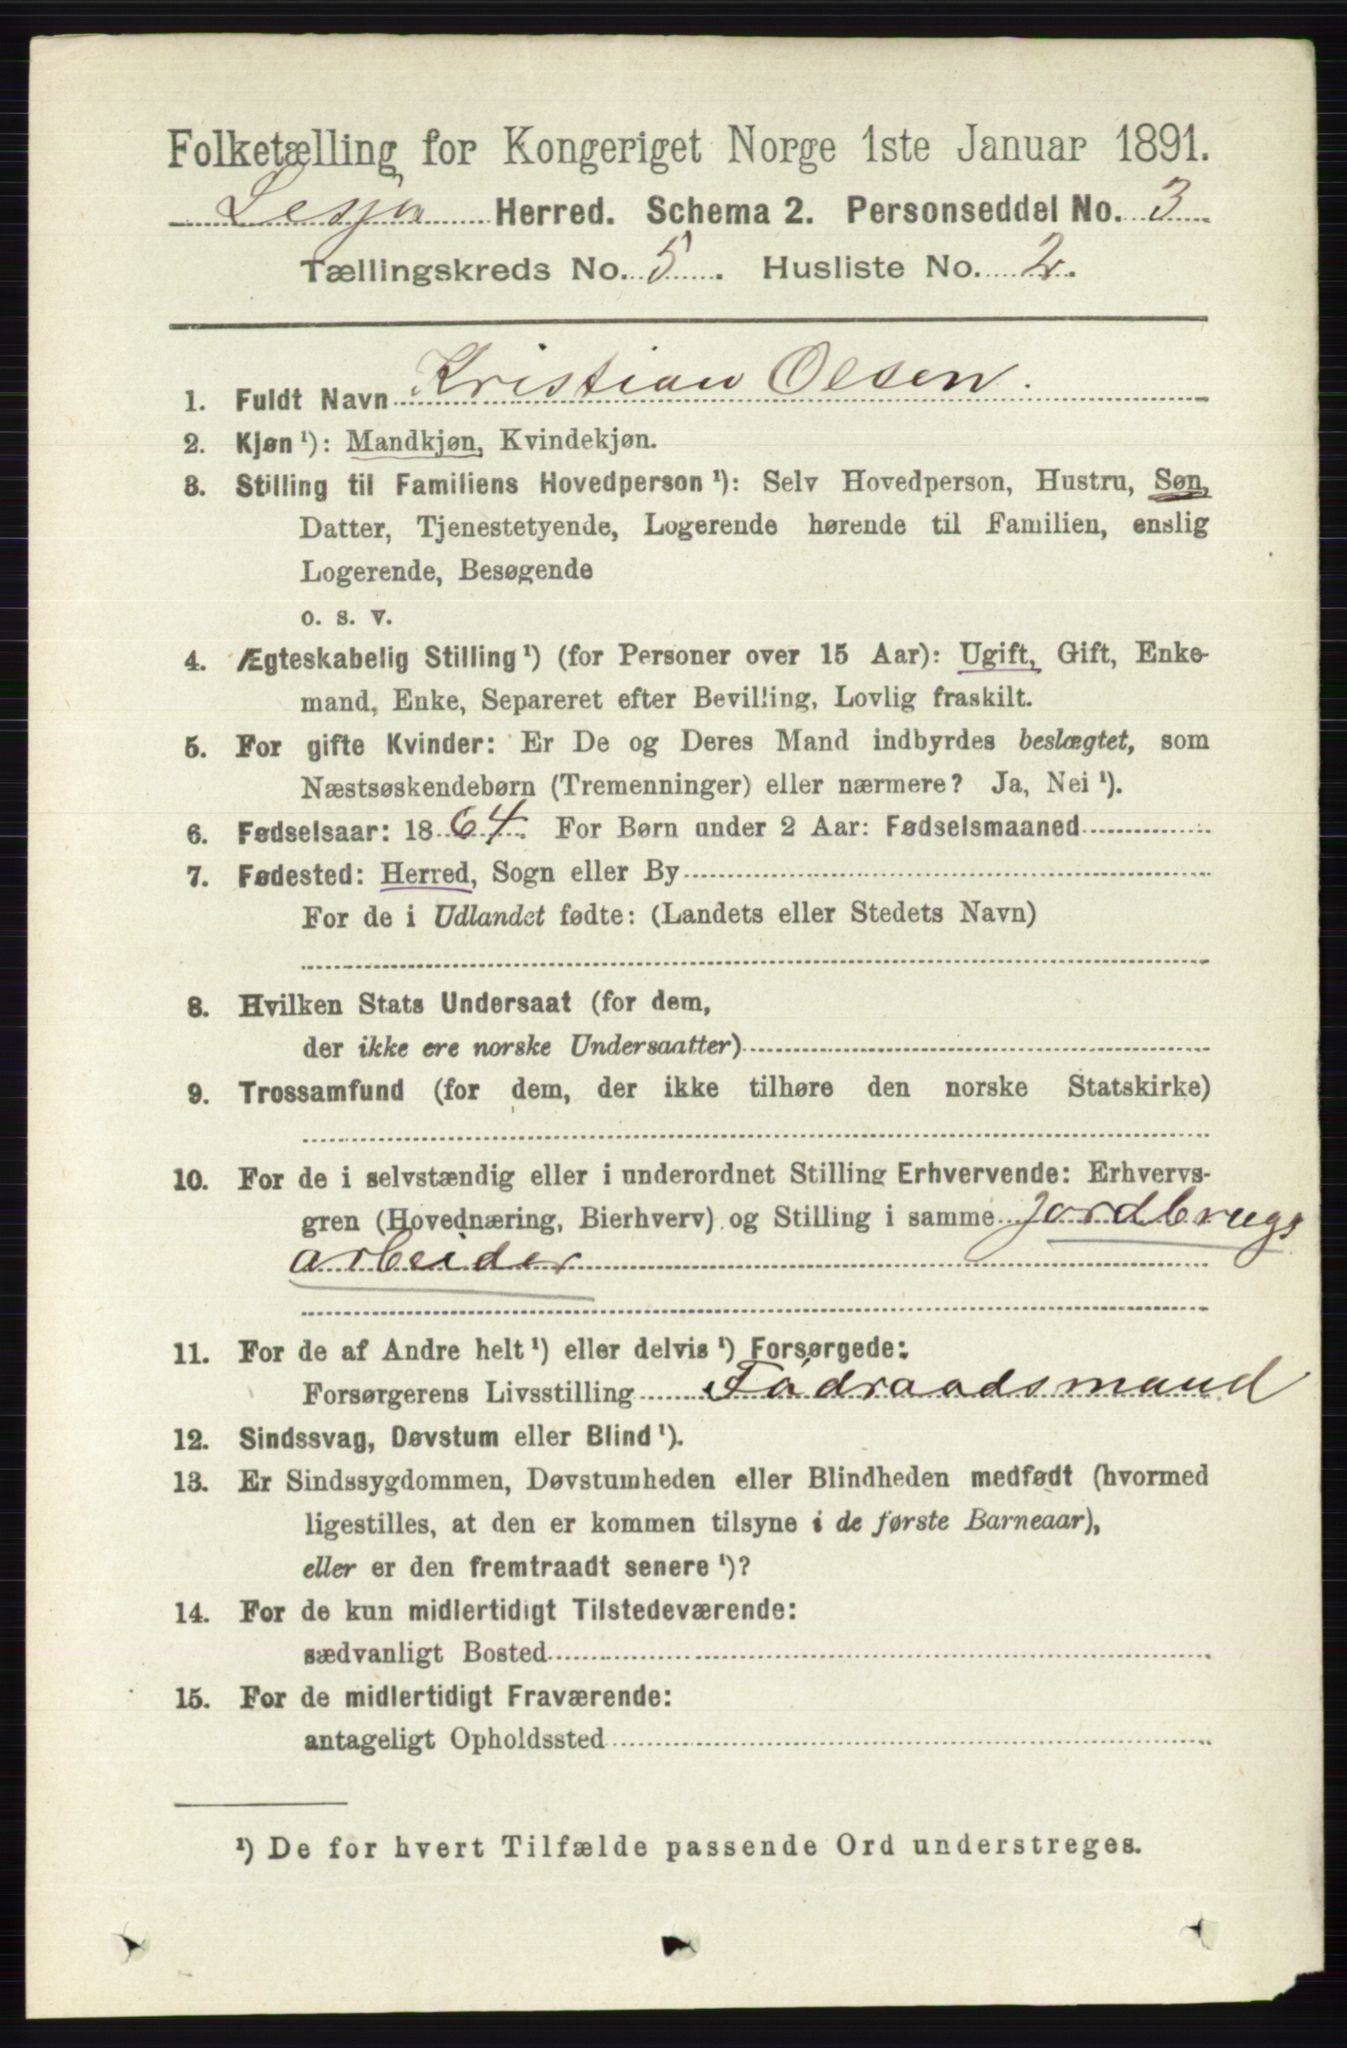 Folketælling for Kongeriget Norge 1ste Januar 1891.
Lesja Herred. Schema 2. Personseddel No. 3
Tællingskreds No. 5. Husliste No. 2.
1. Fuldt Navn Kristian Olsen.
2. Kjøn ¹): Mandkjøn, Kvindekjøn.
3. Stilling til Familiens Hovedperson ¹): Selv Hovedperson, Hustru, Søn,
Datter, Tjenestetyende, Logerende hørende til Familien, enslig
Logerende, Besøgende
o. s. v.
4. Ægteskabelig Stilling ¹) (for Personer over 15 Aar): Ugift, Gift, Enke-
mand, Enke, Separeret efter Bevilling, Lovlig fraskilt.
5. For gifte Kvinder: Er De og Deres Mand indbyrdes beslægtet, som
Næstsøskendebørn (Tremenninger) eller nærmere? Ja, Nei ¹).
6. Fødselsaar: 1864. For Børn under 2 Aar: Fødselsmaaned
7. Fødested: Herred, Sogn eller By
For de i Udlandet fødte: (Landets eller Stedets Navn)
8. Hvilken Stats Undersaat (for dem,
der ikke ere norske Undersaatter)
9. Trossamfund (for dem, der ikke tilhøre den norske Statskirke)
10. For de i selvstændig eller i underordnet Stilling Erhvervende: Erhvervs-
gren (Hovednæring, Bierhverv) og Stilling i samme Jordbrugs
arbeider
11. For de af Andre helt ¹) eller delvis ¹) Forsørgede:
Forsørgerens Livsstilling Fødraadsmand
12. Sindssvag, Døvstum eller Blind ¹).
13. Er Sindssygdommen, Døvstumheden eller Blindheden medfødt (hvormed
ligestilles, at den er kommen tilsyne i de første Barneaar),
eller er den fremtraadt senere ¹)?
14. For de kun midlertidigt Tilstedeværende:
sædvanligt Bosted
15. For de midlertidigt Fraværende:
antageligt Opholdssted
¹) De for hvert Tilfælde passende Ord understreges.